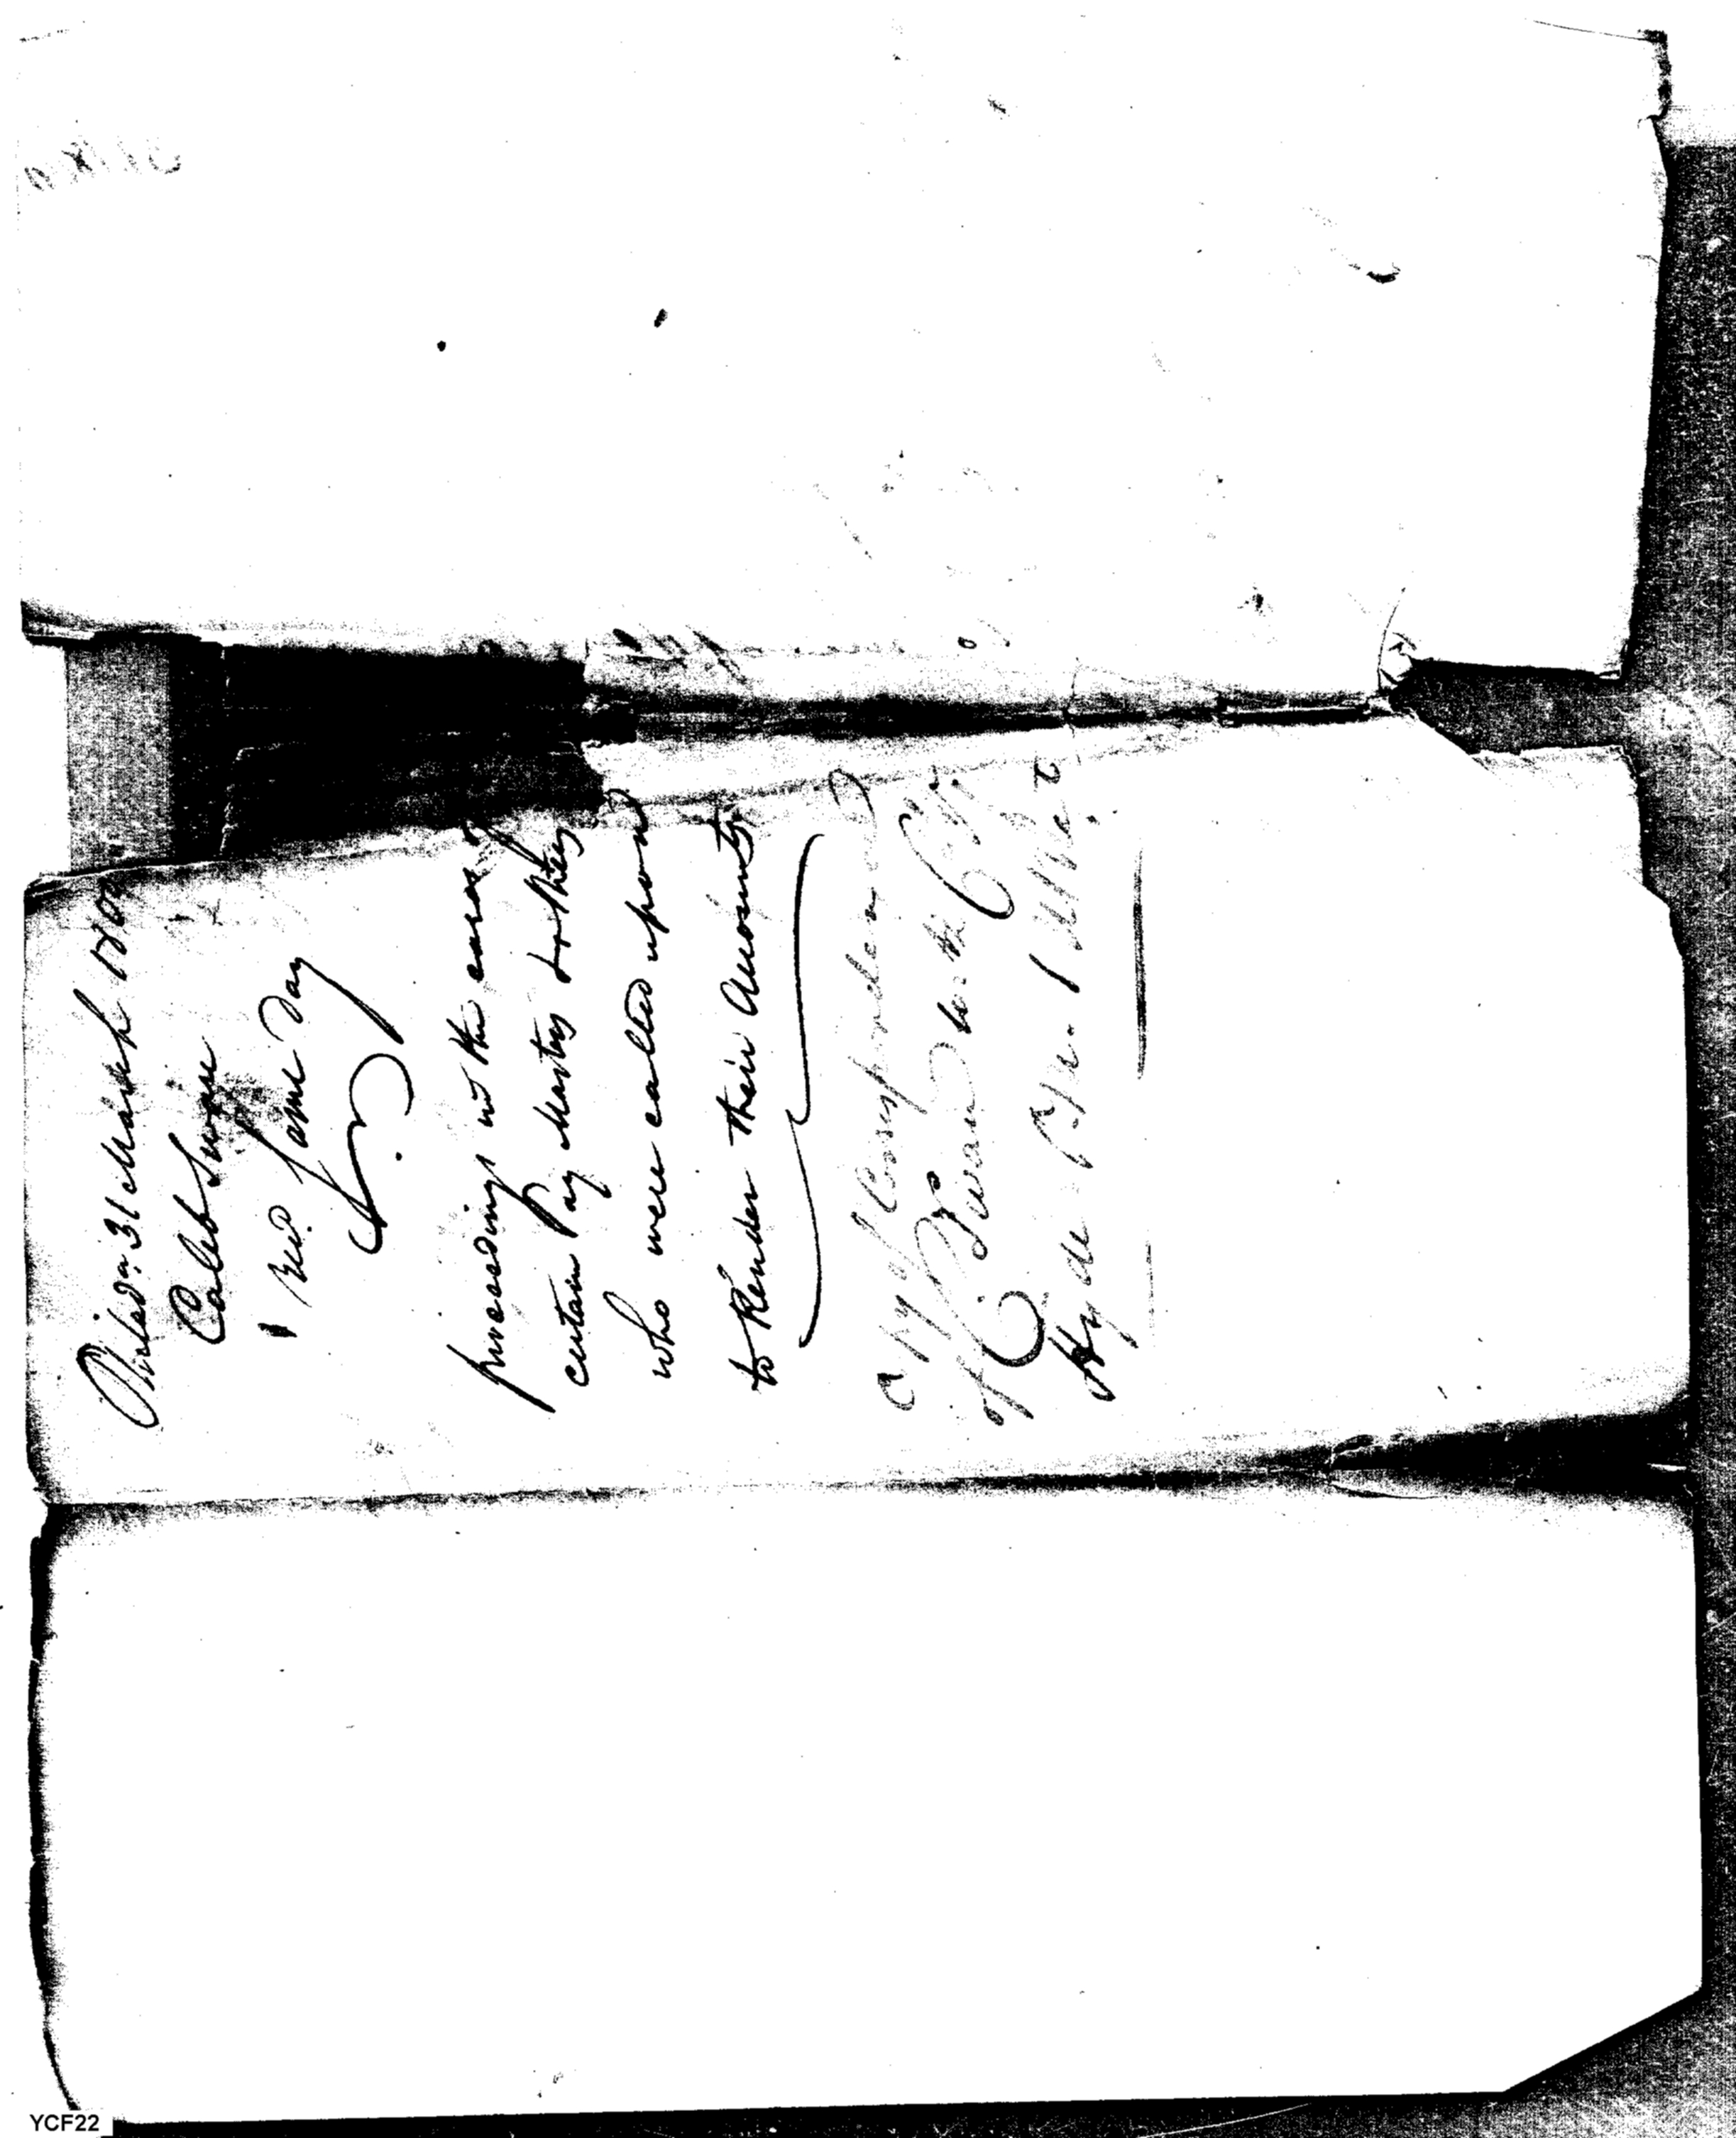 Philada. 31 March 180
Caleb Swan
Recd. Same Day
proceedings in the cases of
certain Pay Masters
who were called upon
to Render their Accounts
Copy of Correspondence
of C. Swan with Capt.
Hyde
YCF22